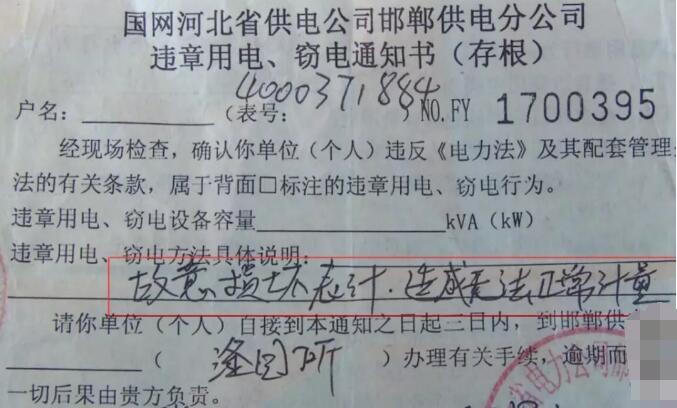 国网河北省供电公司邯郸供电分公司
违章用电、窃电通知书（存根）
户名：（表号：4000371884）NO.FY 1700395
经现场检查，确认你单位（个人）违反《电力法》及其配套管理
法的有关条款，属于背面□标注的违章用电、窃电行为。
违章用电、窃电设备容量 kVA（kW）
违章用电、窃电方法具体说明：
故意损坏表计．造成无法正常计量
请你单位（个人）自接到本通知之日起三日内，到邯郸供
（ ）办理有关手续，逾期而
一切后果由贵方负责。
省电力公司邯郸